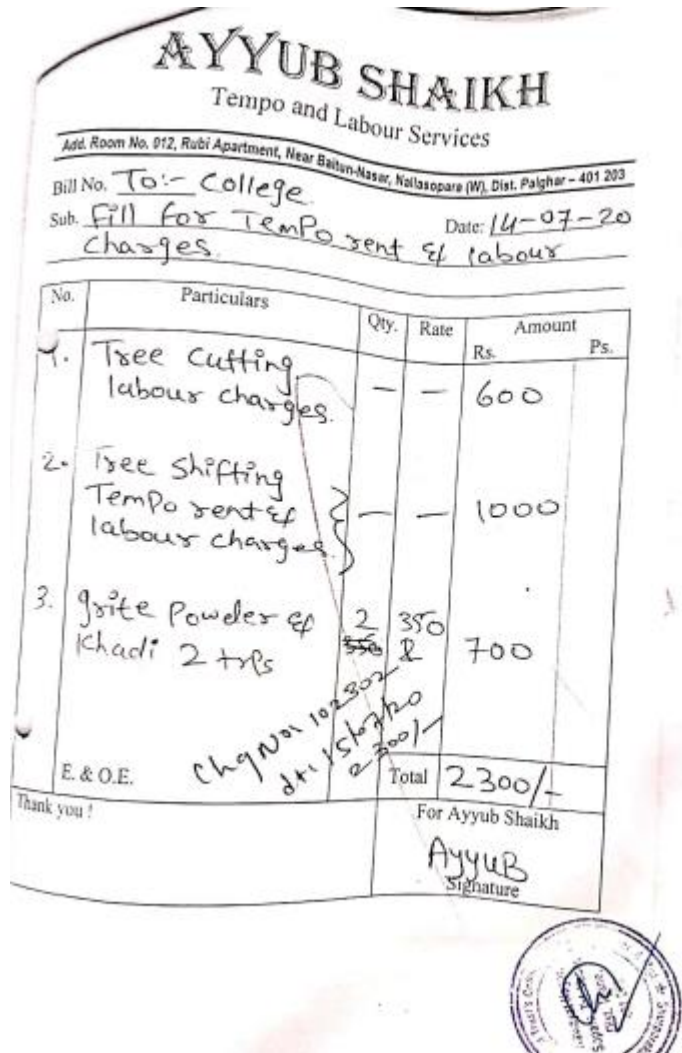 AYYUB SHAIKH
Tempo and Labour Services
Add. Room No. 012, Rubi Apartment, Near Baitun-Nasar, Nallasopara (W), Dist. Palghar – 401 203
Bill No. To:- College
Date: 14-07-20
Sub. Fill for Tempo rent & labour
charges.
No. Particulars Qty. Rate Amount
Rs. Ps.
1. Tree cutting
labour charges. — — 600
2. Tree Shifting
Tempo rent &
labour charges. — — 1000
3. grite Powder & 2 350
Khadi 2 trps 700
Chq No: 102302
dt: 15/07/20
2300/-
E. & O.E. Total 2300/-
Thank you !
For Ayyub Shaikh
AyyuB
Signature